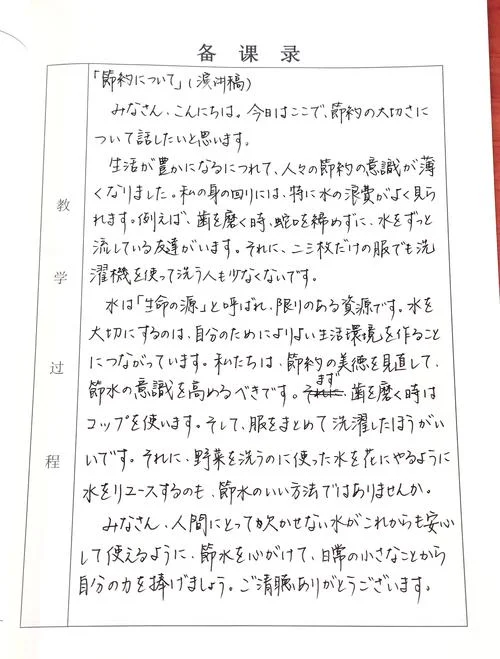 备课录
教学过程
「節約について」(演讲稿)
みなさん、こんにちは。今日はここで、節約の大切さに
ついて話したいと思います。
生活が豊かになるにつれて、人々の節約の意識が薄
くなりました。私の身の回りには、特に水の浪費がよく見ら
れます。例えば、歯を磨く時、蛇口を締めずに、水をずっと
流している友達がいます。それに、二三枚だけの服でも洗
濯機を使って洗う人も少なくないです。
水は「生命の源」と呼ばれ、限りのある資源です。水を
大切にするのは、自分のためによりよい生活環境を作ること
につながっています。私たちは、節約の美徳を見直して、
節水の意識を高めるべきです。まず歯を磨く時は
コップを使います。そして、服をまとめて洗濯したほうがい
いです。それに、野菜を洗うのに使った水を花にやるように
水をリユースするのも、節水のいい方法ではありませんか。
みなさん、人間にとって欠かせない水がこれからも安心
して使えるように、節水を心がけて、日常の小さなことから
自分の力を捧げましょう。ご清聴ありがとうございます。